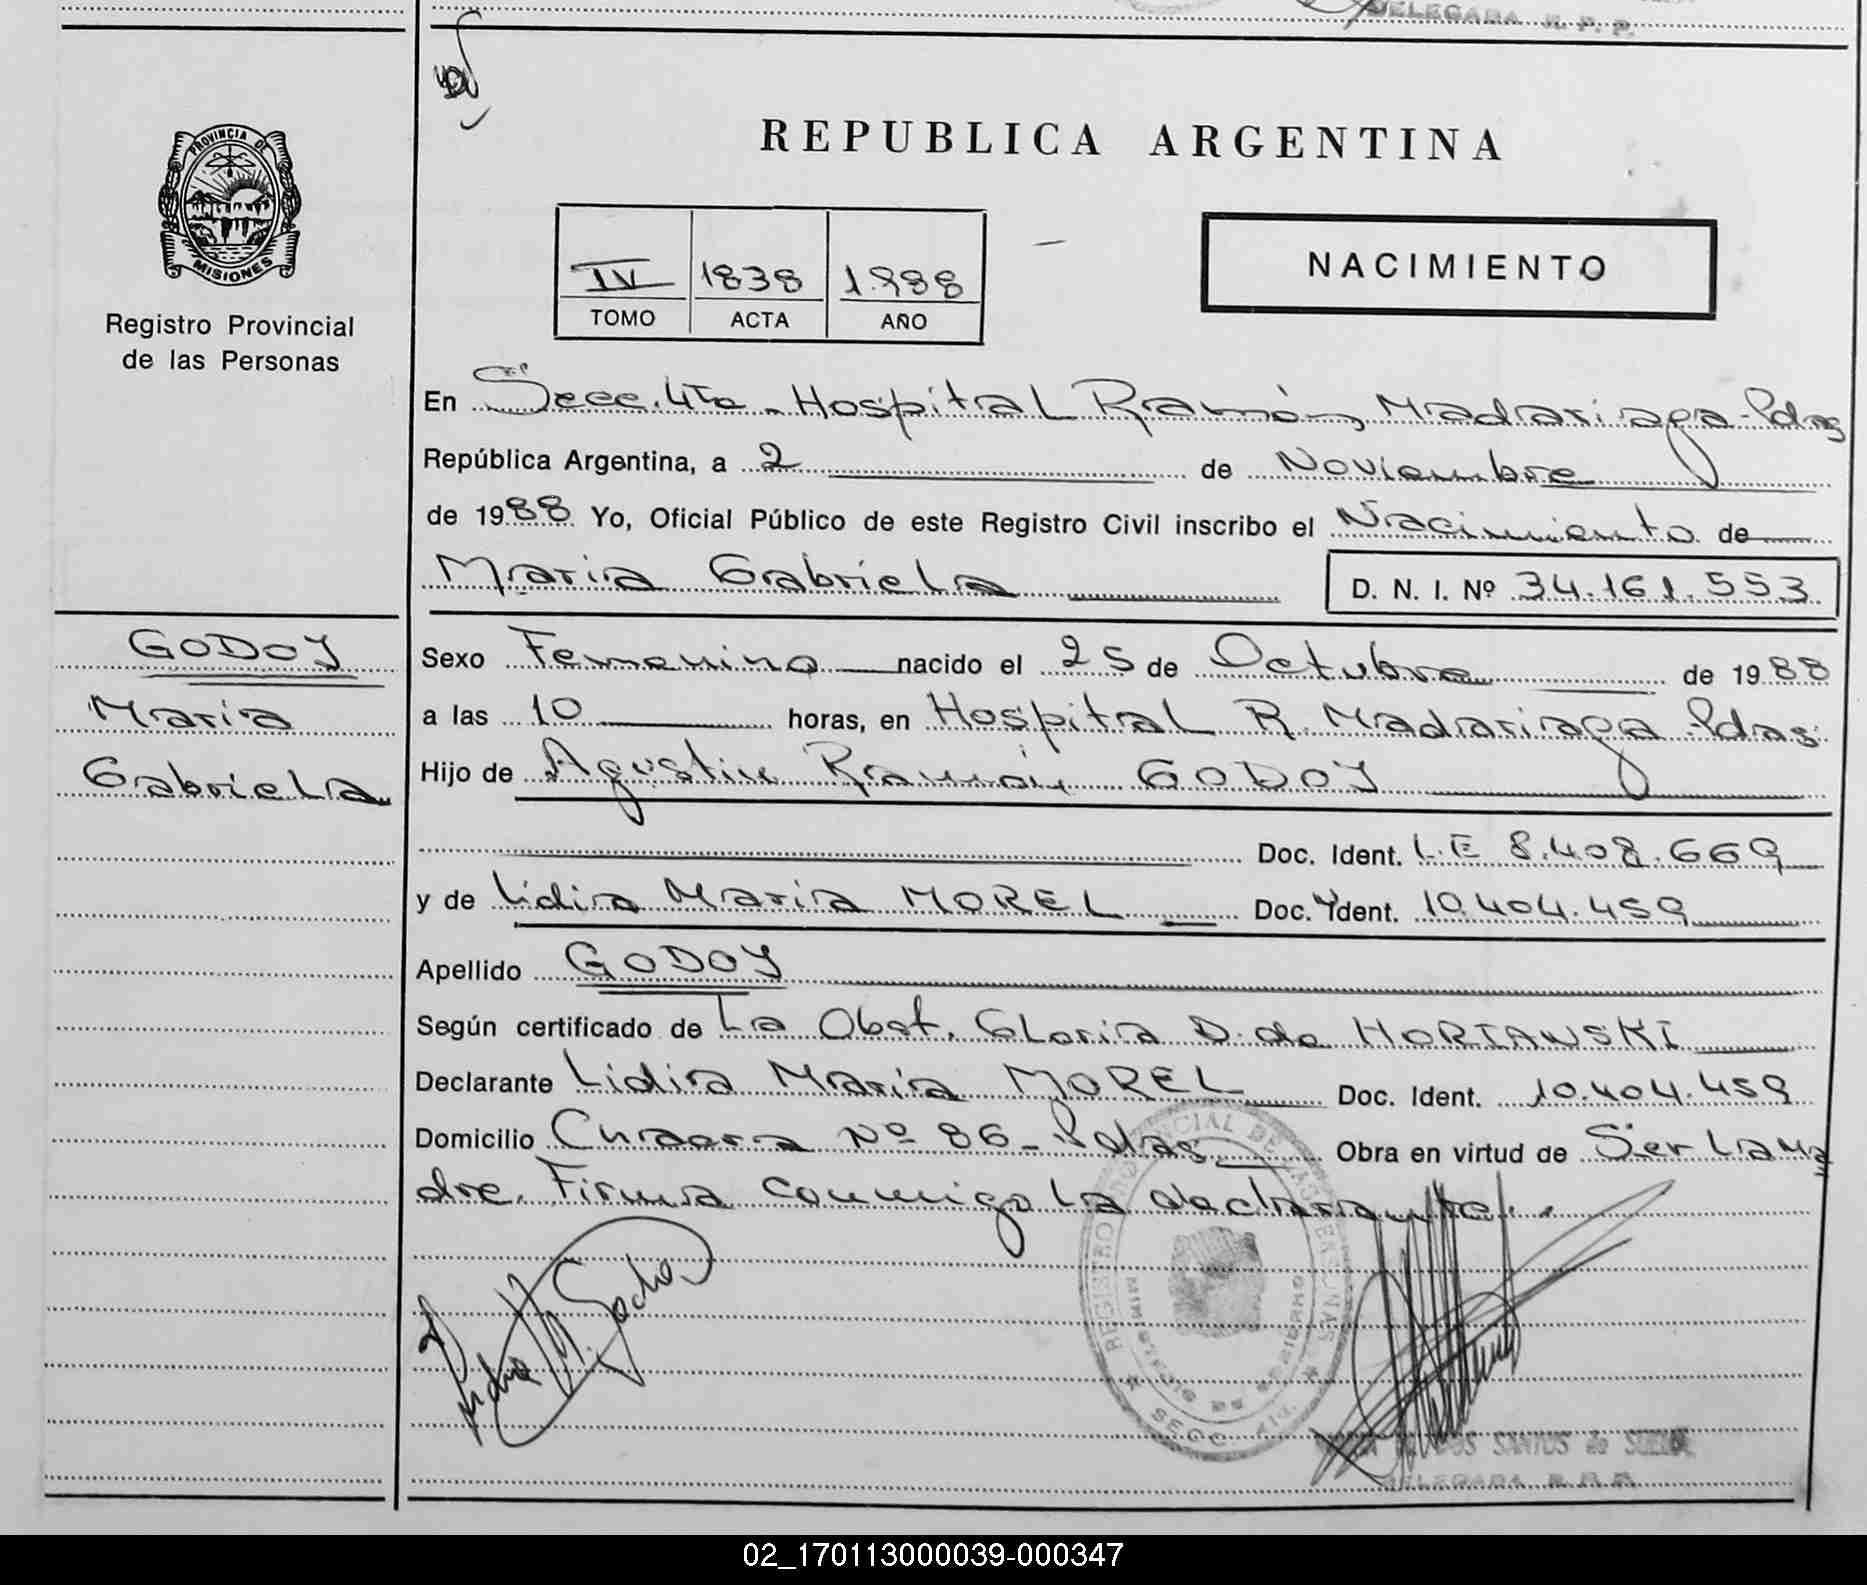 DELEGADA R. P. P.
REPUBLICA ARGENTINA
PROVINCIA DE
MISIONES
Registro Provincial
de las Personas
IV 1838 1.988
TOMO ACTA AÑO
NACIMIENTO
En Secc. 4ta - Hospital Ramón Madariaga - Pdas
República Argentina, a 2 de Noviembre
de 1988 Yo, Oficial Público de este Registro Civil inscribo el Nacimiento de
Maria Gabriela D. N. I. Nº 34.161.553
GODOY
Maria
Gabriela
Sexo Femenino nacido el 25 de Octubre de 1988
a las 10 horas, en Hospital R. Madariaga Pdas
Hijo de Agustin Ramón GODOY
Doc. Ident. L.E 8.408.669
y de Lidia Maria MOREL Doc. Ident. 10.404.459
Apellido GODOY
Según certificado de La Obst. Gloria D. de HORIANSKI
Declarante Lidia María MOREL Doc. Ident. 10.404.459
Domicilio Nº 86 - Pdas Obra en virtud de Ser La Ma
dre. Firma conmigo la declarante.
SECC.
DOS SANTOS de
DELEGADA R. P. P.
02_170113000039-000347